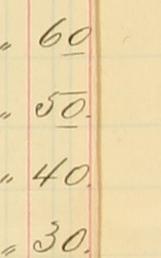 " 60
" 50.
" 40.
" 30.